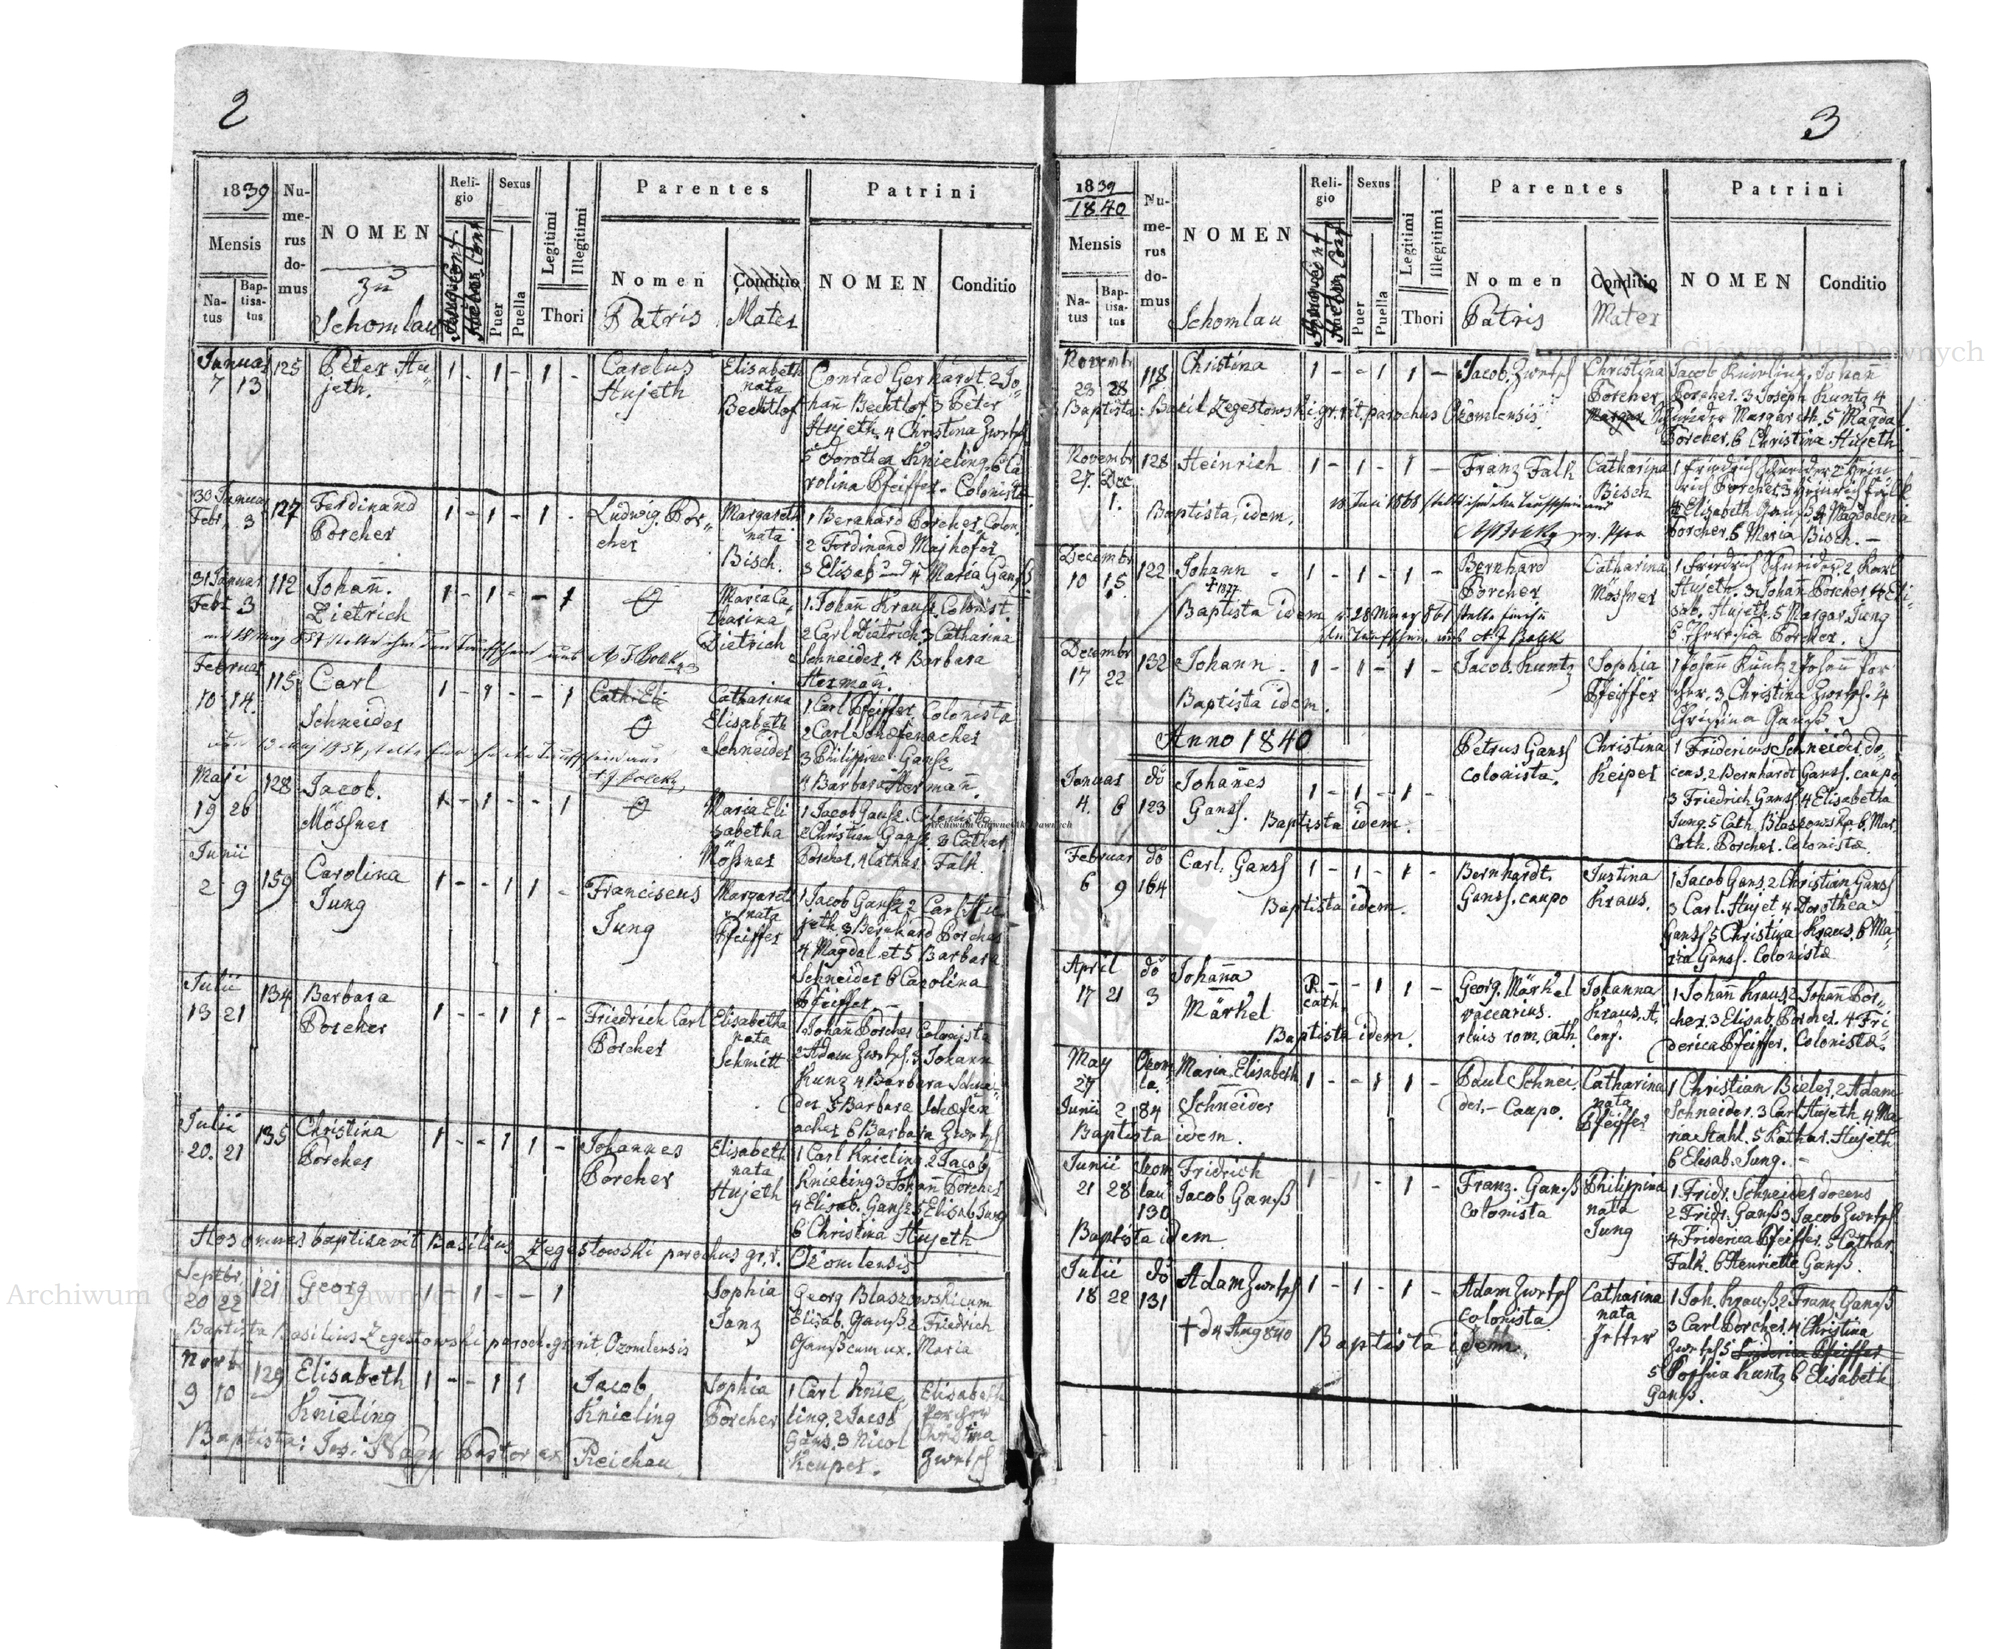 2
1839
Mensis
Na-
tus
Bap-
tisa-
tus
Nu-
me-
rus
do-
mus
NOMEN
zu
Schomlau
Reli-
gio
Sexus
Puer
Puella
Legitimi
Illegitimi
Thori
Parentes
Nomen
Patris
Conditio
Mater
Patrini
NOMEN
Conditio
Januar
7 13
125
Peter Hu-
jeth.
1 - 1 - 1 -
Carolus
Hujeth
Elisabeth
nata
Bechtlof
Conrad Gerhardt 2 Jo-
hañ Bechtlof 3 Peter
Hujeth. 4 Christina Zwrtzl
5 Dorothea Knieling 6 Ca
rolina Pfeiffer - Colonista
30 Januar
Febr. 3
127
Ferdinand
Porcher
1 - 1 - 1 -
Ludwig Por-
cher
Margareth
nata
Bisch.
1 Bernhard Porcher, Colon.
2 Ferdinand Majhofer
3 Elisab und 4 Maria Ganß
31 Januar
Febr 3
112
Johañ.
Dietrich
1 - 1 - - 1
Maria Ca-
tharina
Dietrich
1. Johañ Krauß. Colonist.
2 Carl Dietrich 3 Catharina
Schneider, 4 Barbara
Hermañ.
Februar
10 14.
115
Carl
Schneider
Catharina
Elisabeth
Schneider
1. Carl Pfeiffer Colonista
2 Carl Schæfenacher
3 Philippina Ganß.
4 Barbara Hermañ.
Maji
19 26
128
Jacob.
Mößner
1 - 1 - - 1
Maria Eli
sabetha
Mößner
1 Jacob Ganß. Colonista
2 Christian Ganß. 3 Cathar.
Porcher, 4 Cathar. Falk.
Junii
2 9
159
Carolina
Jung
1 - - 1 1 -
Franciscus
Jung
Margareth
nata
Pfeiffer
1 Jacob Ganß 2 Carl Hu
jeth. 3 Bernhard Porcher
4 Magdal et 5 Barbara
Schneider 6 Carolina
Pfeiffer -
Julii
13 21
134
Barbara
Porcher
1 - - 1 1 -
Friedrich Carl
Porcher
Elisabetha
nata
Schmitt
1 Johañ Porcher Colonista
2 Adam Zwrtzl. 3 Johann
Kunz 4 Barbara Schnei-
der 5 Barbara Schæfen
acher 6 Barbara Zwrtzl
Julii
20. 21
135
Christina
Porcher
1 - - 1 1 -
Johannes
Porcher
Elisabeth
nata
Hujeth
1 Carl Knieling 2 Jacob
Knieling 3 Johañ Porcher
4 Elisab. Ganß 5 Elisab Jung
6 Christina Hujeth
Hos omnes baptisavit Basilius Zegestowski parochus gr. r. Ozomlensis
Septbr.
20 22
121
Georg
1 - 1 - - 1
Sophia
Janz
Georg Blaszowski cum
Elisab. Ganß 2 Friedrich
Ganß cum ux. Maria
Baptista Basilius Zegestowski paroch. gr. rit. Ozomlensis
Novbr
9 10
129
Elisabeth
Knieling
1 - - 1 1
Jacob
Knieling
Sophia
Porcher
1 Carl Knie
ling. 2 Jacob
Gans. 3 Nicol
Keuper.
Elisabeth
Porcher
Christina
Zwrtzl
Baptista: Jos: Nagy Pastor ex Reichau
3
1839
1840
Mensis
Na-
tus
Bap-
tisa-
tus
Nu-
me-
rus
do-
mus
NOMEN
Schomlau
Reli-
gio
Sexus
Puer
Puella
Legitimi
Illegitimi
Thori
Parentes
Nomen
Patris
Conditio
Mater
Patrini
NOMEN
Conditio
Novembr
23 28
118
Christina
1 - - 1 1 -
Jacob. Zwrtzl
Christina
Porcher
Jacob Knieling. Johañ
Porcher. 3 Joseph Kuntz 4
Schneider Margareth. 5 Magdal.
Porcher, 6 Christina Hujeth
Baptista: Basil. Zegestowski gr. rit. parochus Ozomlensis
Novembr
27. Dec
1.
128
Heinrich
1 - 1 - 1 -
Franz Falk
Catharina
Bisch
1 Friedrich Schneider 2 Hein
rich Porcher 3 Heinrich Falk
4 Elisabeth Ganß, 4 Magdalena
Porcher, 6 Maria Bisch. -
Baptista, idem.
Decembr
10 15
122
Johann
†1877
1 - 1 - 1 -
Bernhard
Porcher
Catharina
Mößner
1 Friedrich Schneider. 2 Karl
Hujeth. 3 Johañ Porcher 4 Eli-
sab. Hujeth. 5 Margar. Jung
6 Theresia Porcher.
Baptista idem
Decembr
17 22
132
Johann
1 - 1 - 1 -
Jacob. Kuntz
Sophia
Pfeiffer
1 Johañ Kuntz 2 Johañ Por
cher. 3 Christina Zwrtzl. 4
Christina Ganß
Baptista idem.
Anno 1840
Januar
4. 6
dö
123
Johañes
Ganß.
1 - 1 - 1 -
Petrus Ganß
colonista.
Christina
Keiper
1 Fridericus Schneider, do-
cens, 2 Bernhardt Ganß. caupo
3 Friedrich Ganß. 4 Elisabetha
Jung, 5 Cath. Blaszowska 6. Mar.
Cath. Porcher. Colonistæ.
Baptista idem.
Februar
6 9
dö
164
Carl. Ganß
1 - 1 - 1 -
Bernhardt.
Ganß. caupo
Justina
Kraus.
1 Jacob Gans, 2 Christian Ganß
3 Carl. Hujet 4. Dorothea
Ganß 5 Christina Kraus, 6 Ma-
ria Ganß. Colonistæ
Baptista idem.
April
17 21
dö
3
Johaña
Märkel
R.
cath.
- - 1 1 -
Georg. Märkel
vaccarius.
ritus rom. cath.
Johanna
Kraus. A.
Conf.
1 Johañ Kraus, 2 Johañ Por-
cher. 3 Elisab. Porcher. 4 Fri
derica Pfeiffer. Colonistæ.
Baptista idem.
May
27
Junii 2
Ozom
la.
84
Maria Elisabeth
Schneider
1 - - 1 1 -
Paul Schnei-
der. - Caupo.
Catharina
nata
Pfeiffer
1 Christian Bieler, 2 Adam
Schneider. 3 Carl Hujeth. 4. Ma
ria Stahl. 5 Kathar. Hujeth.
6 Elisab. Jung. -
Baptista idem.
Junii
21 28
130
Fridrich
Jacob Ganß
1 - 1 - 1 -
Franz. Ganß
Colonista
Philippina
nata
Jung
1 Fridr. Schneider docens
2 Fridr. Ganß 3 Jacob Zwrtzl
4 Friderica Pfeiffer. 5 Cathar.
Falk. 6 Henriette Ganß.
Baptista idem
Julii
18 22
dö
131
Adam Zwrtzl
1 - 1 - 1 -
Adam Zwrtzl
colonista
Catharina
nata
Jetter
1 Joh. Krauß 2 Franz Ganß
3 Carl Porcher, 4 Christina
Zwrtzl 5 Friderica Pfeiffer
5 Sophia Kuntz 6 Elisabeth
Ganß.
† d 4 Aug 840
Baptista idem.
Archiwum Główne Akt Dawnych
Archiwum Główne Akt Dawnych
Archiwum Główne Akt Dawnych